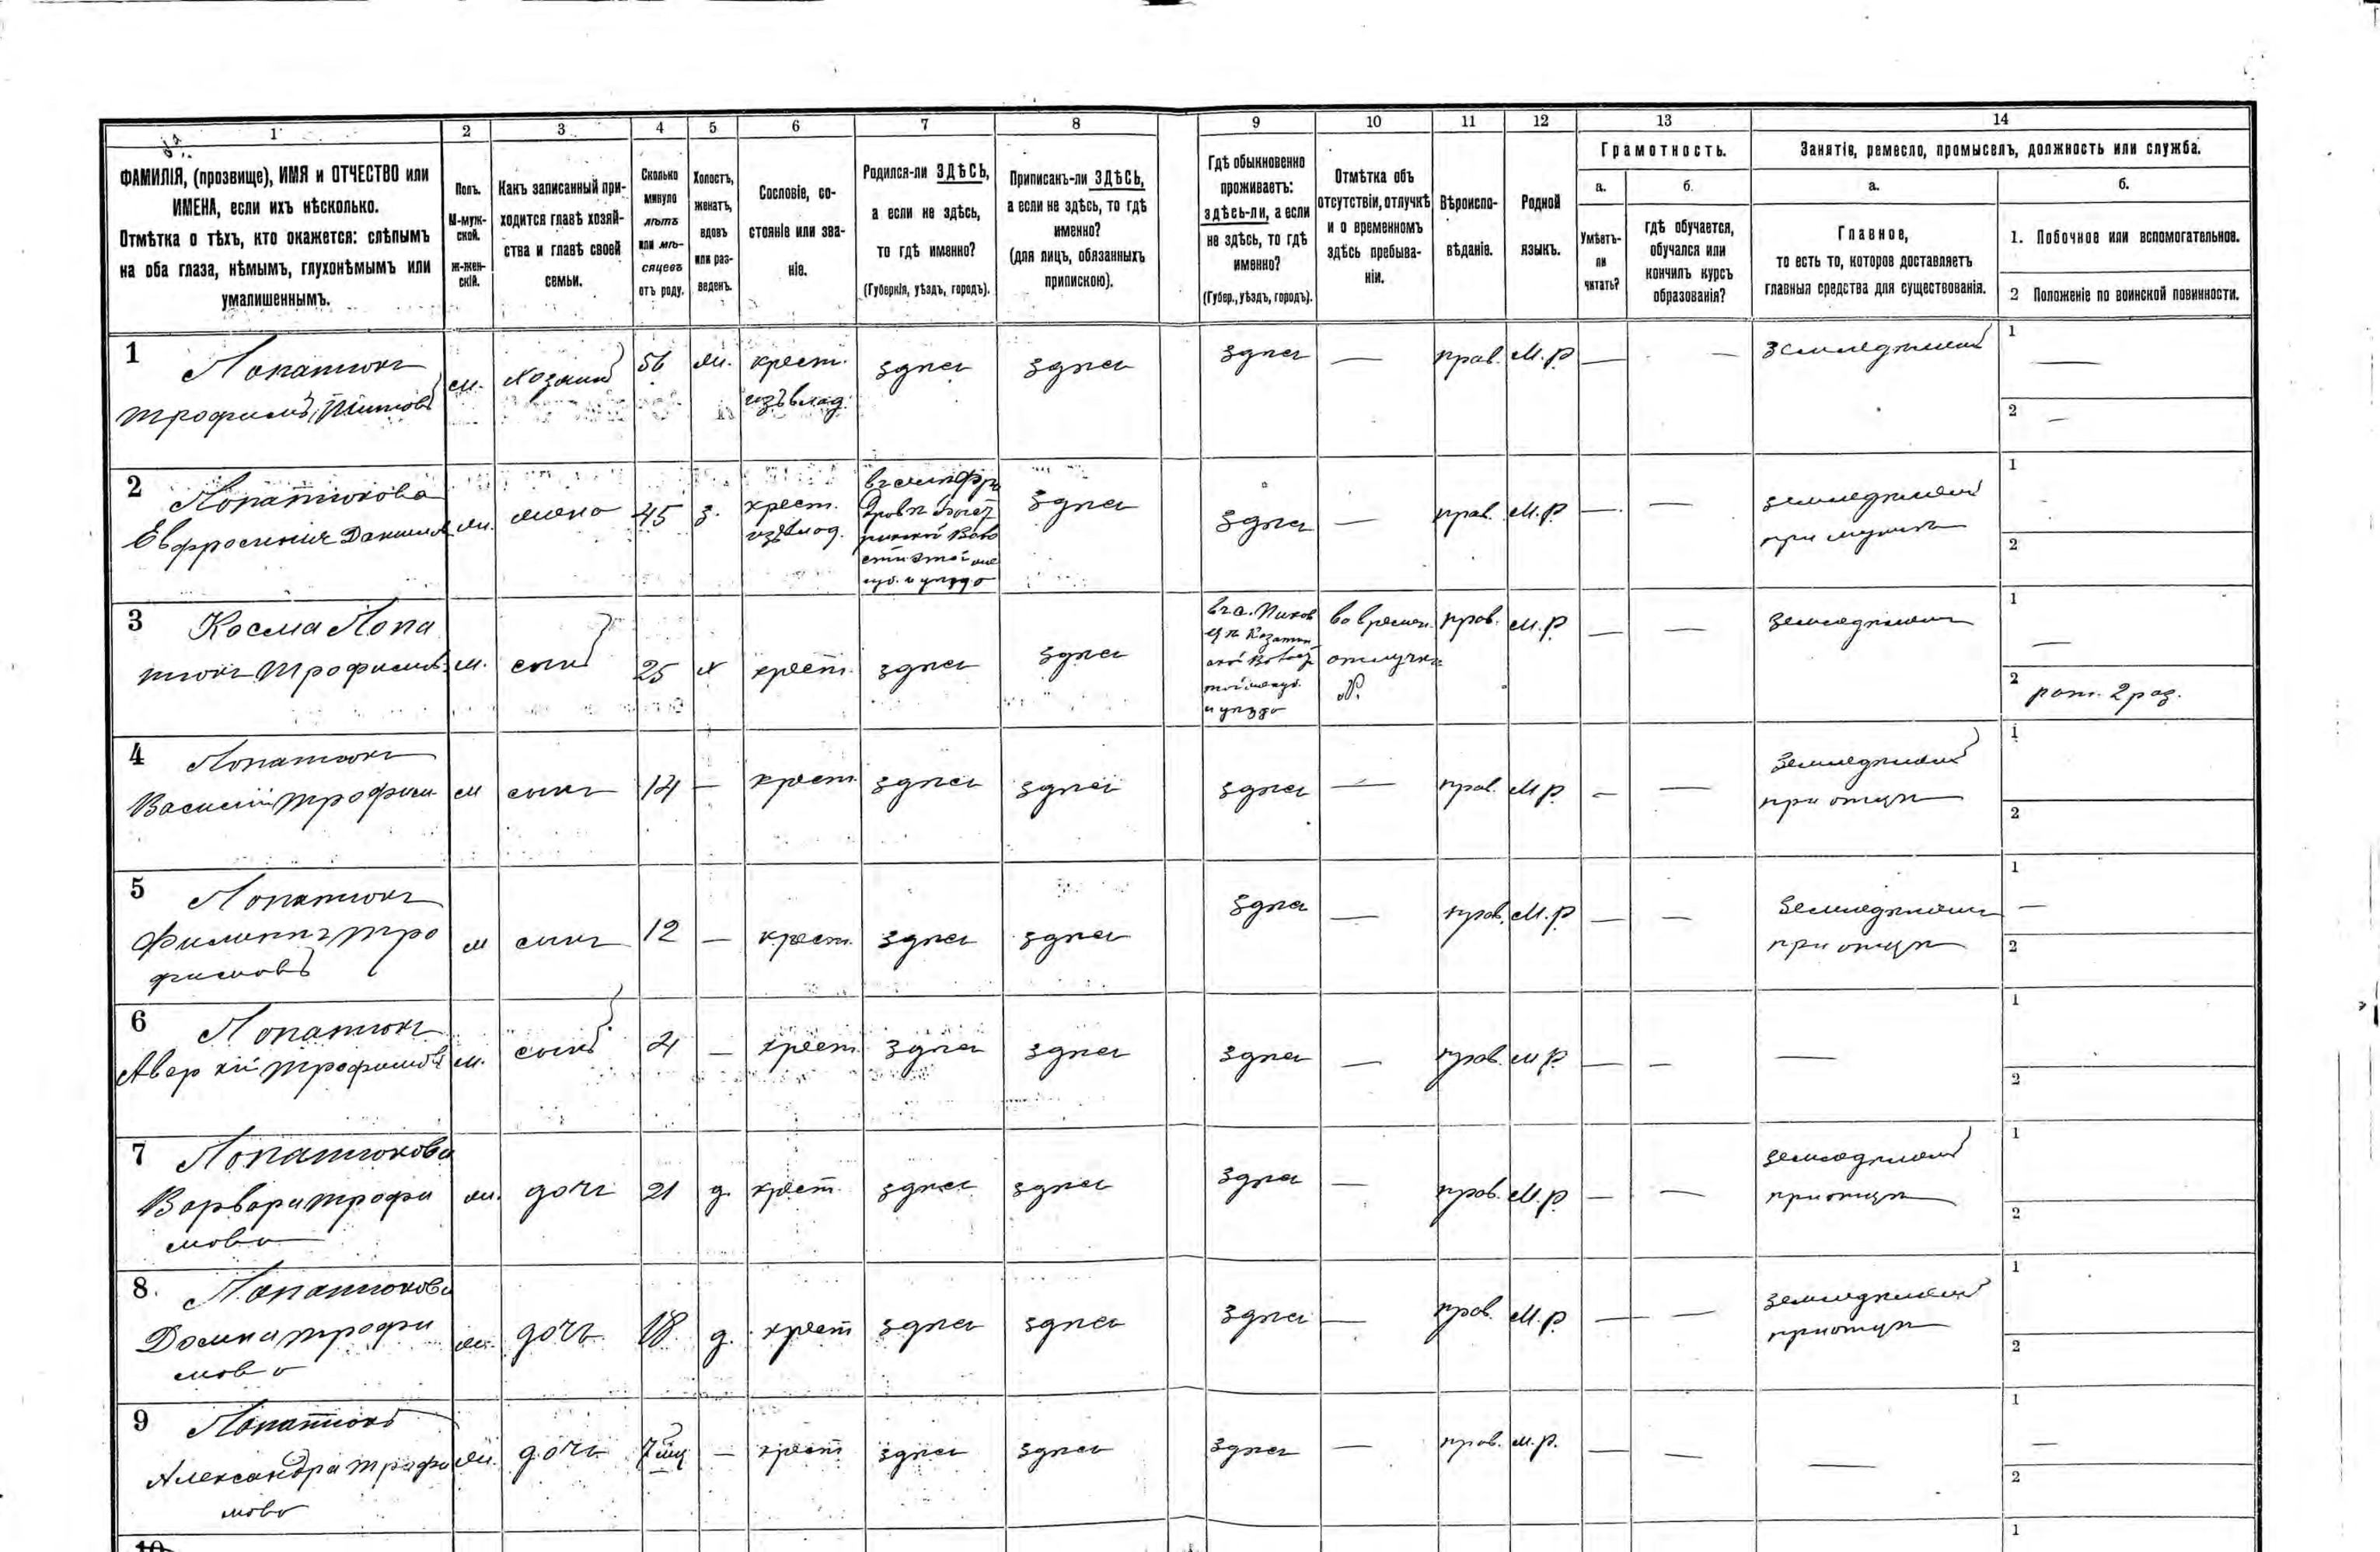 1 2 3 4 5 6 7 8 9 10 11 12 13 14
ФАМИЛІЯ, (прозвище), ИМЯ и ОТЧЕСТВО или
ИМЕНА, если ихъ нѣсколько.
Отмѣтка о тѣхъ, кто окажется: слѣпымъ
на оба глаза, нѣмымъ, глухонѣмымъ или
умалишеннымъ.
Полъ.
М-муж-
ской.
Ж-жен-
скій.
Какъ записанный при-
ходится главѣ хозяй-
ства и главѣ своей
семьи.
Сколько
минуло
лѣтъ
или мѣ-
сяцевъ
отъ роду.
Холостъ,
женатъ,
вдовъ
или раз-
веденъ.
Сословіе, со-
стояніе или зва-
ніе.
Родился-ли ЗДѢСЬ,
а если не здѣсь,
то гдѣ именно?
(Губернія, уѣздъ, городъ).
Приписанъ-ли ЗДѢСЬ,
а если не здѣсь, то гдѣ
именно?
(для лицъ, обязанныхъ
припискою).
Гдѣ обыкновенно
проживаетъ:
здѣсь-ли, а если
не здѣсь, то гдѣ
именно?
(Губер., уѣздъ, городъ).
Отмѣтка объ
отсутствіи, отлучкѣ
и о временномъ
здѣсь пребыва-
ніи.
Вѣроиспо-
вѣданіе.
Родной
языкъ.
Грамотность.
а.
Умѣетъ-
ли
читать?
б.
гдѣ обучается,
обучался или
кончилъ курсъ
образованія?
Занятіе, ремесло, промыселъ, должность или служба.
а.
Главное,
то есть то, которое доставляетъ
главныя средства для существованія.
б.
1. Побочное или вспомогательное.
2 Положеніе по воинской повинности.
1 Лопатюкъ
Трофимъ Титовъ
м. хозяинъ 56 ж. крест.
изъ влад.
здѣсь здѣсь здѣсь — прав. М.р — — земледѣліе
1 —
2 —
2 Лопатюкова
Евфросинія Данилов
ж. жена 45 з. крест.
изъ влад.
здѣсь здѣсь — прав. М.р. — — земледѣліе
при мужѣ
1
2
3 Косма Лопа
тюкъ Трофимов
м. сынъ 25 х крест. здѣсь здѣсь
во времен.
отлучкѣ
прав. М.р — — земледѣліе
1 —
2 рат. 2 раз.
4 Лопатюкъ
Василій Трофим
м сынъ 14 — крест здѣсь здѣсь здѣсь — прав. М р. — — земледѣліе
при отцѣ
1
2
5 Лопатюкъ
Филиппъ Тро
фимовъ
м сынъ 12 — крест. здѣсь здѣсь здѣсь — прав. М.р — — земледѣліе
при отцѣ
1 —
2
6 Лопатюкъ
Аверкій Трофимовъ
м. сынъ — крест здѣсь здѣсь здѣсь — прав. М р. — — —
1
2
7 Лопатюкова
Варвара Трофи
мова
ж. дочь 21 д. крест. здѣсь здѣсь здѣсь — прав. М.р — — земледѣліе
при отцѣ
1
2
8. Лопатюкова
Домна Трофи
мова
ж. дочь 18 д. крест здѣсь здѣсь здѣсь — прав. М.р — — земледѣліе
при отцѣ
1
2
9 Лопатюкъ
Александра Трофи
мова
ж. дочь — крест здѣсь здѣсь здѣсь — прав. м.р. — — —
1 —
2
10
1